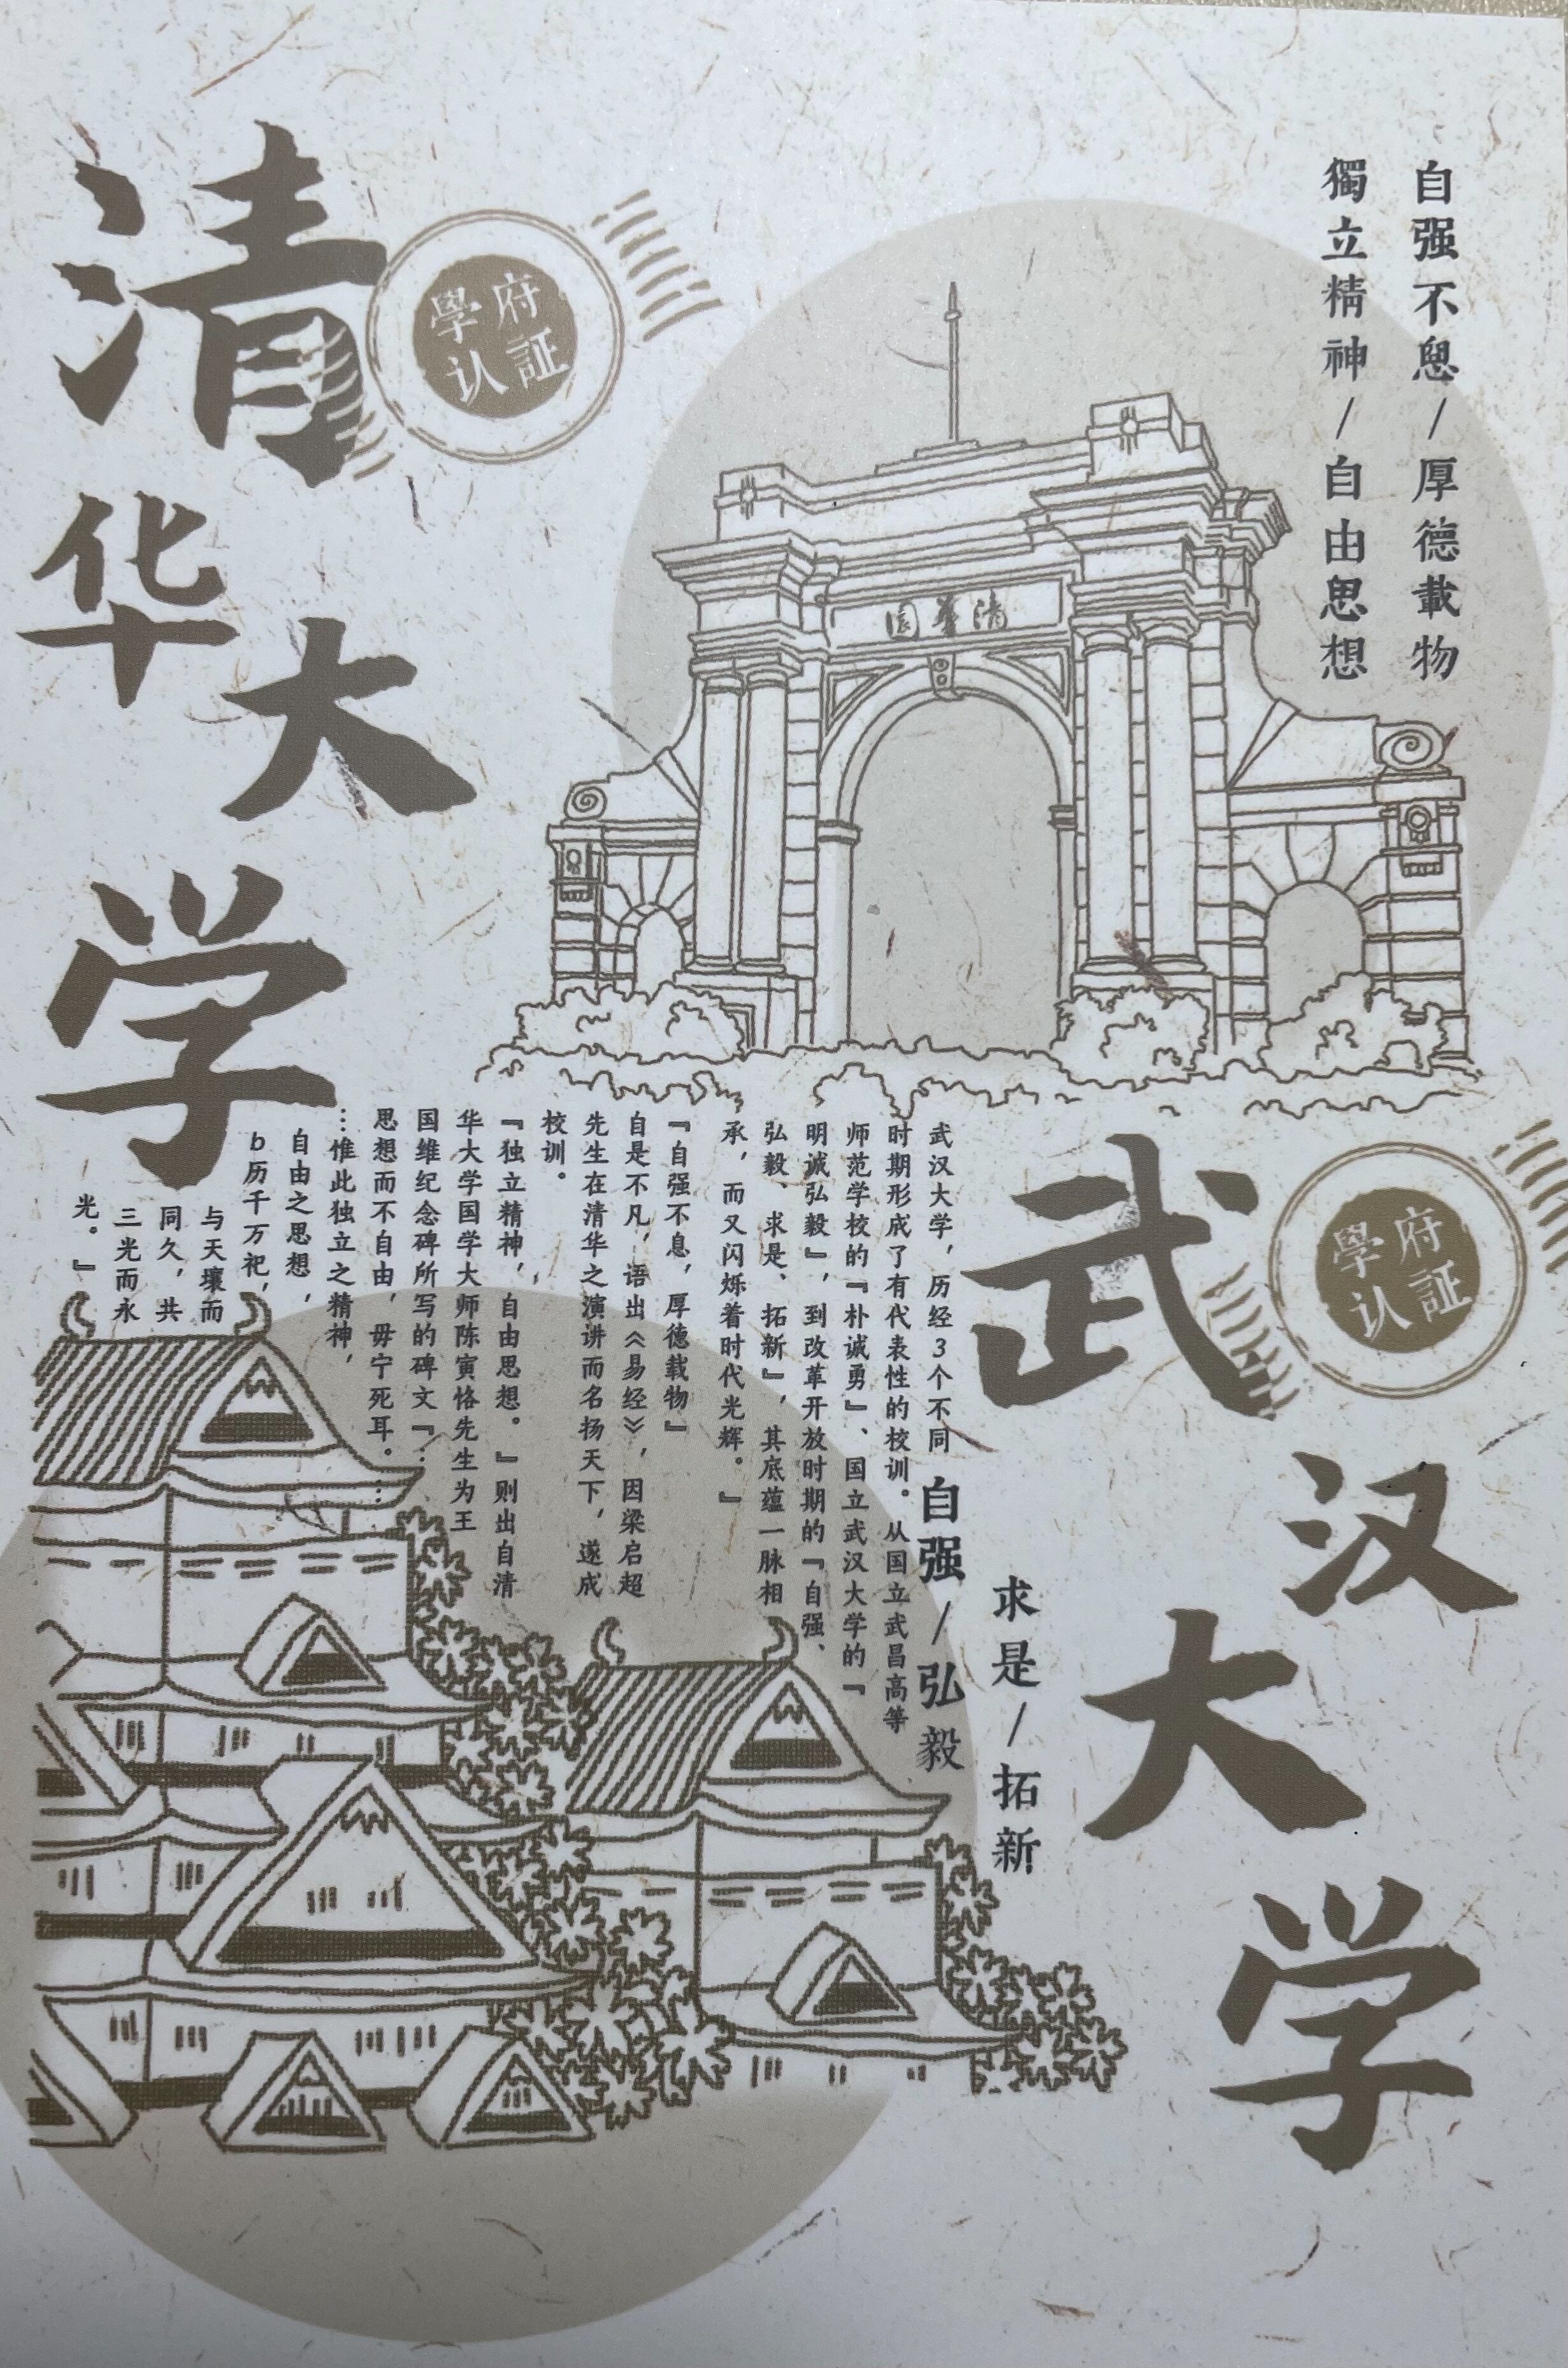 清华大学
學府
认証
自强不息/厚德載物
獨立精神/自由思想
清華園
武汉大学
學府
认証
自强/弘毅
求是/拓新
武汉大学，历经3个不同
时期形成了有代表性的校训。从国立武昌高等
师范学校的『朴诚勇』、国立武汉大学的『
明诚弘毅』，到改革开放时期的『自强、
弘毅、求是、拓新』，其底蕴一脉相
承，而又闪烁着时代光辉。』
『自强不息，厚德载物』
自是不凡，语出《易经》，因梁启超
先生在清华之演讲而名扬天下，遂成
校训。
『独立精神，自由思想。』则出自清
华大学国学大师陈寅恪先生为王
国维纪念碑所写的碑文『…
思想而不自由，毋宁死耳。…
…惟此独立之精神，
自由之思想，
b历千万祀，
与天壤而
同久，共
三光而永
光。』